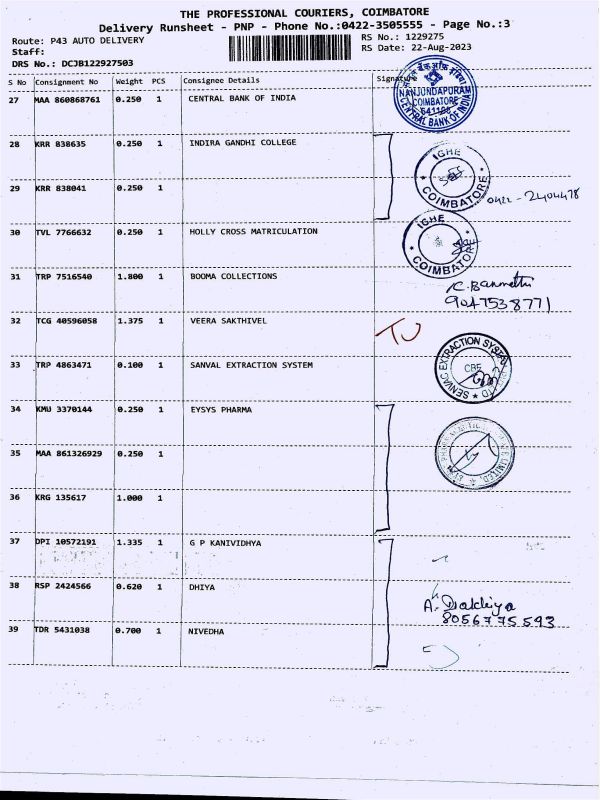 THE PROFESSIONAL COURIERS, COIMBATORE
Delivery Runsheet - PNP - Phone No.:0422-3505555 - Page No.:3
Route: P43 AUTO DELIVERY RS No.: 1229275
Staff: RS Date: 22-Aug-2023
DRS No.: DCJB122927503
S No Consignment No Weight PCS Consignee Details Signature
27 MAA 860868761 0.250 1 CENTRAL BANK OF INDIA
NANJUNDAPURAM
COIMBATORE
CENTRAL BANK OF INDIA
28 KRR 838635 0.250 1 INDIRA GANDHI COLLEGE
IGHE
COIMBATORE
29 KRR 838041 0.250 1
0422 - 2404478
30 TVL 7766632 0.250 1 HOLLY CROSS MATRICULATION
IGHE
COIMBATORE
31 TRP 7516540 1.800 1 BOOMA COLLECTIONS
9047538771
32 TCG 40596058 1.375 1 VEERA SAKTHIVEL
33 TRP 4863471 0.100 1 SANVAL EXTRACTION SYSTEM
EXTRACTION
CBE
34 KMU 3370144 0.250 1 EYSYS PHARMA
35 MAA 861326929 0.250 1
36 KRG 135617 1.000 1
37 DPI 10572191 1.335 1 G P KANIVIDHYA
38 RSP 2424566 0.620 1 DHIYA
8056775593
39 TDR 5431038 0.700 1 NIVEDHA